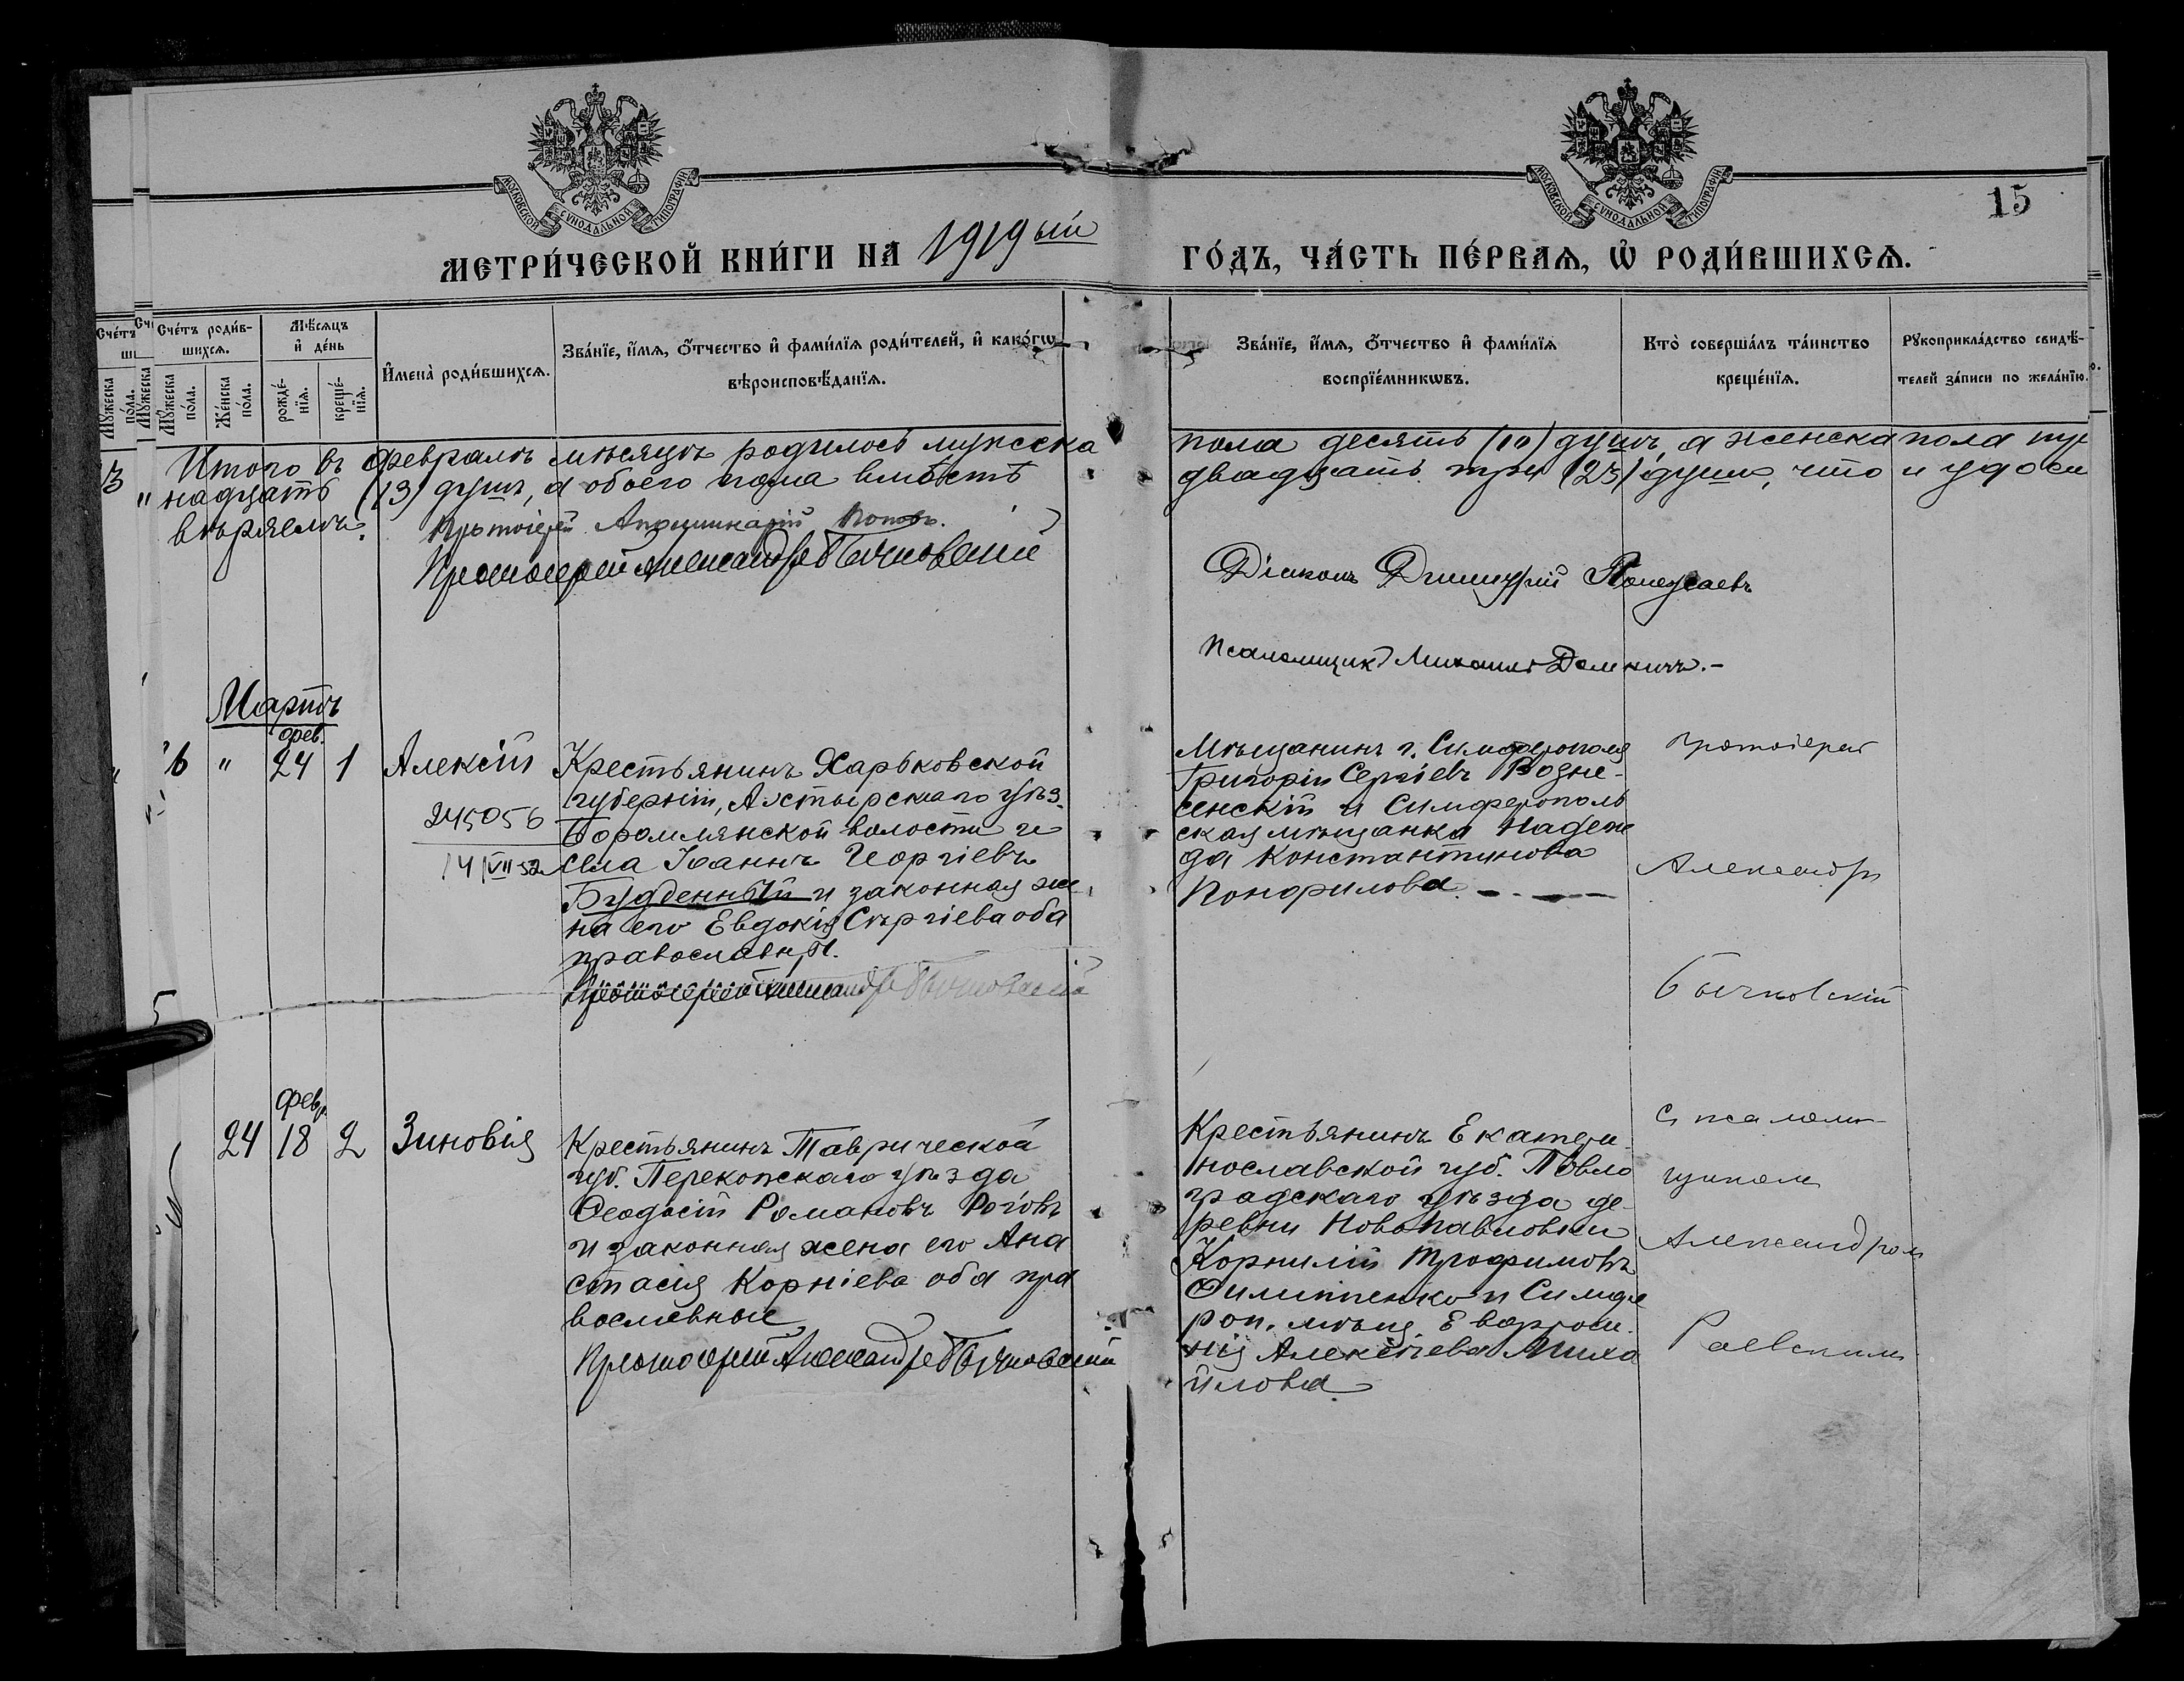 МОСКОВСКОЙ СѴНОДАЛЬНОЙ ТИПОГРАФІИ
МОСКОВСКОЙ СѴНОДАЛЬНОЙ ТИПОГРАФІИ
15
МЕТРИ́ЧЕСКОЙ КНИ́ГИ НА 1919ый ГО́ДЪ, ЧА́СТЬ ПЕ́РВАѦ, Ѡ РОДИ́ВШИХСѦ.
Сче́тъ роди́в-
шихсѧ.
Мꙋ́жеска по́ла.
Же́нска по́ла.
Мѣ́сѧцъ и҆ де́нь
рожде́-
нїѧ.
креще́-
нїѧ.
И҆мена̀ роди́вшихсѧ.
Зва́нїе, и҆́мѧ, ѻ҆́тчество и҆ фами́лїѧ роди́телей, и҆ како́гѡ
вѣроисповѣ́данїѧ.
Зва́нїе, и҆́мѧ, ѻ҆́тчество и҆ фами́лїѧ
воспрїе́мникѡвъ.
Кто̀ соверша́лъ та́инство
креще́нїѧ.
Рꙋкоприкла́дство свидѣ́-
телей за́писи по жела́нїю.
Итого въ Февралѣ мѣсяцѣ родилось мужска пола десять (10) душъ, а женска пола три
надцать (13) душъ, а обоего пола вмѣстѣ двадцать три (23) души, что и удосто
вѣряемъ.
Протоіерей Аполинарій Поповъ.
Протоіерей Александръ Бычковскій
Діаконъ Димитрій Полежаевъ
Псаломщикъ Михаилъ
Мартъ
6 " фев. 24 1 Алексій
245056
14/VII 52
Крестьянинъ Харьковской
губерніи, Ахтырскаго уѣз.
Боромлянской волости и
села Іоаннъ Георгіевъ
Будденный и законная же
на его Евдокія Сергіева оба
православн.
Протоіерей Александръ Бычковскій
Мѣщанинъ г. Симферополя
Григорій Сергіевъ Возне-
сенскій и Симферополь
ская мѣщанка Надеж
да Константинова
Понфилова
Протоіерей
Александръ
Бычковскій
24 февр. 18 2 Зиновія
Крестьянинъ Таврической
губ. Перекопскаго уѣзда
Ѳеодосій Романовъ Роговъ
и законная жена его Ана
стасія Корніева оба пра
вославные
Протоіерей Александръ Бычковскій
Крестьянинъ Екатери-
нославской губ. Павло
градскаго уѣзда де-
ревни Новопавловки
Корнилій Трофимовъ
Филипенко и Симфе
роп. мѣщ. Евфроси-
нія Алексѣева Миха
йлова
съ псалом-
щикомъ
Александромъ
Раевскимъ